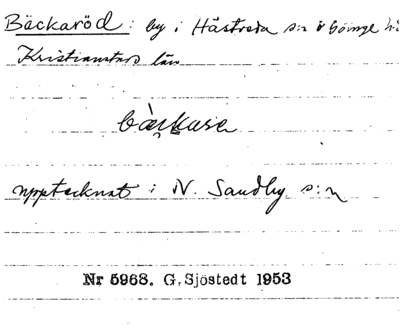 Bäckaröd : by i Hästveda s:n V Göinge h:d
Kristianstads län
bækarə
upptecknat i N. Sandby s:n
Nr 5968. G. Sjöstedt 1953